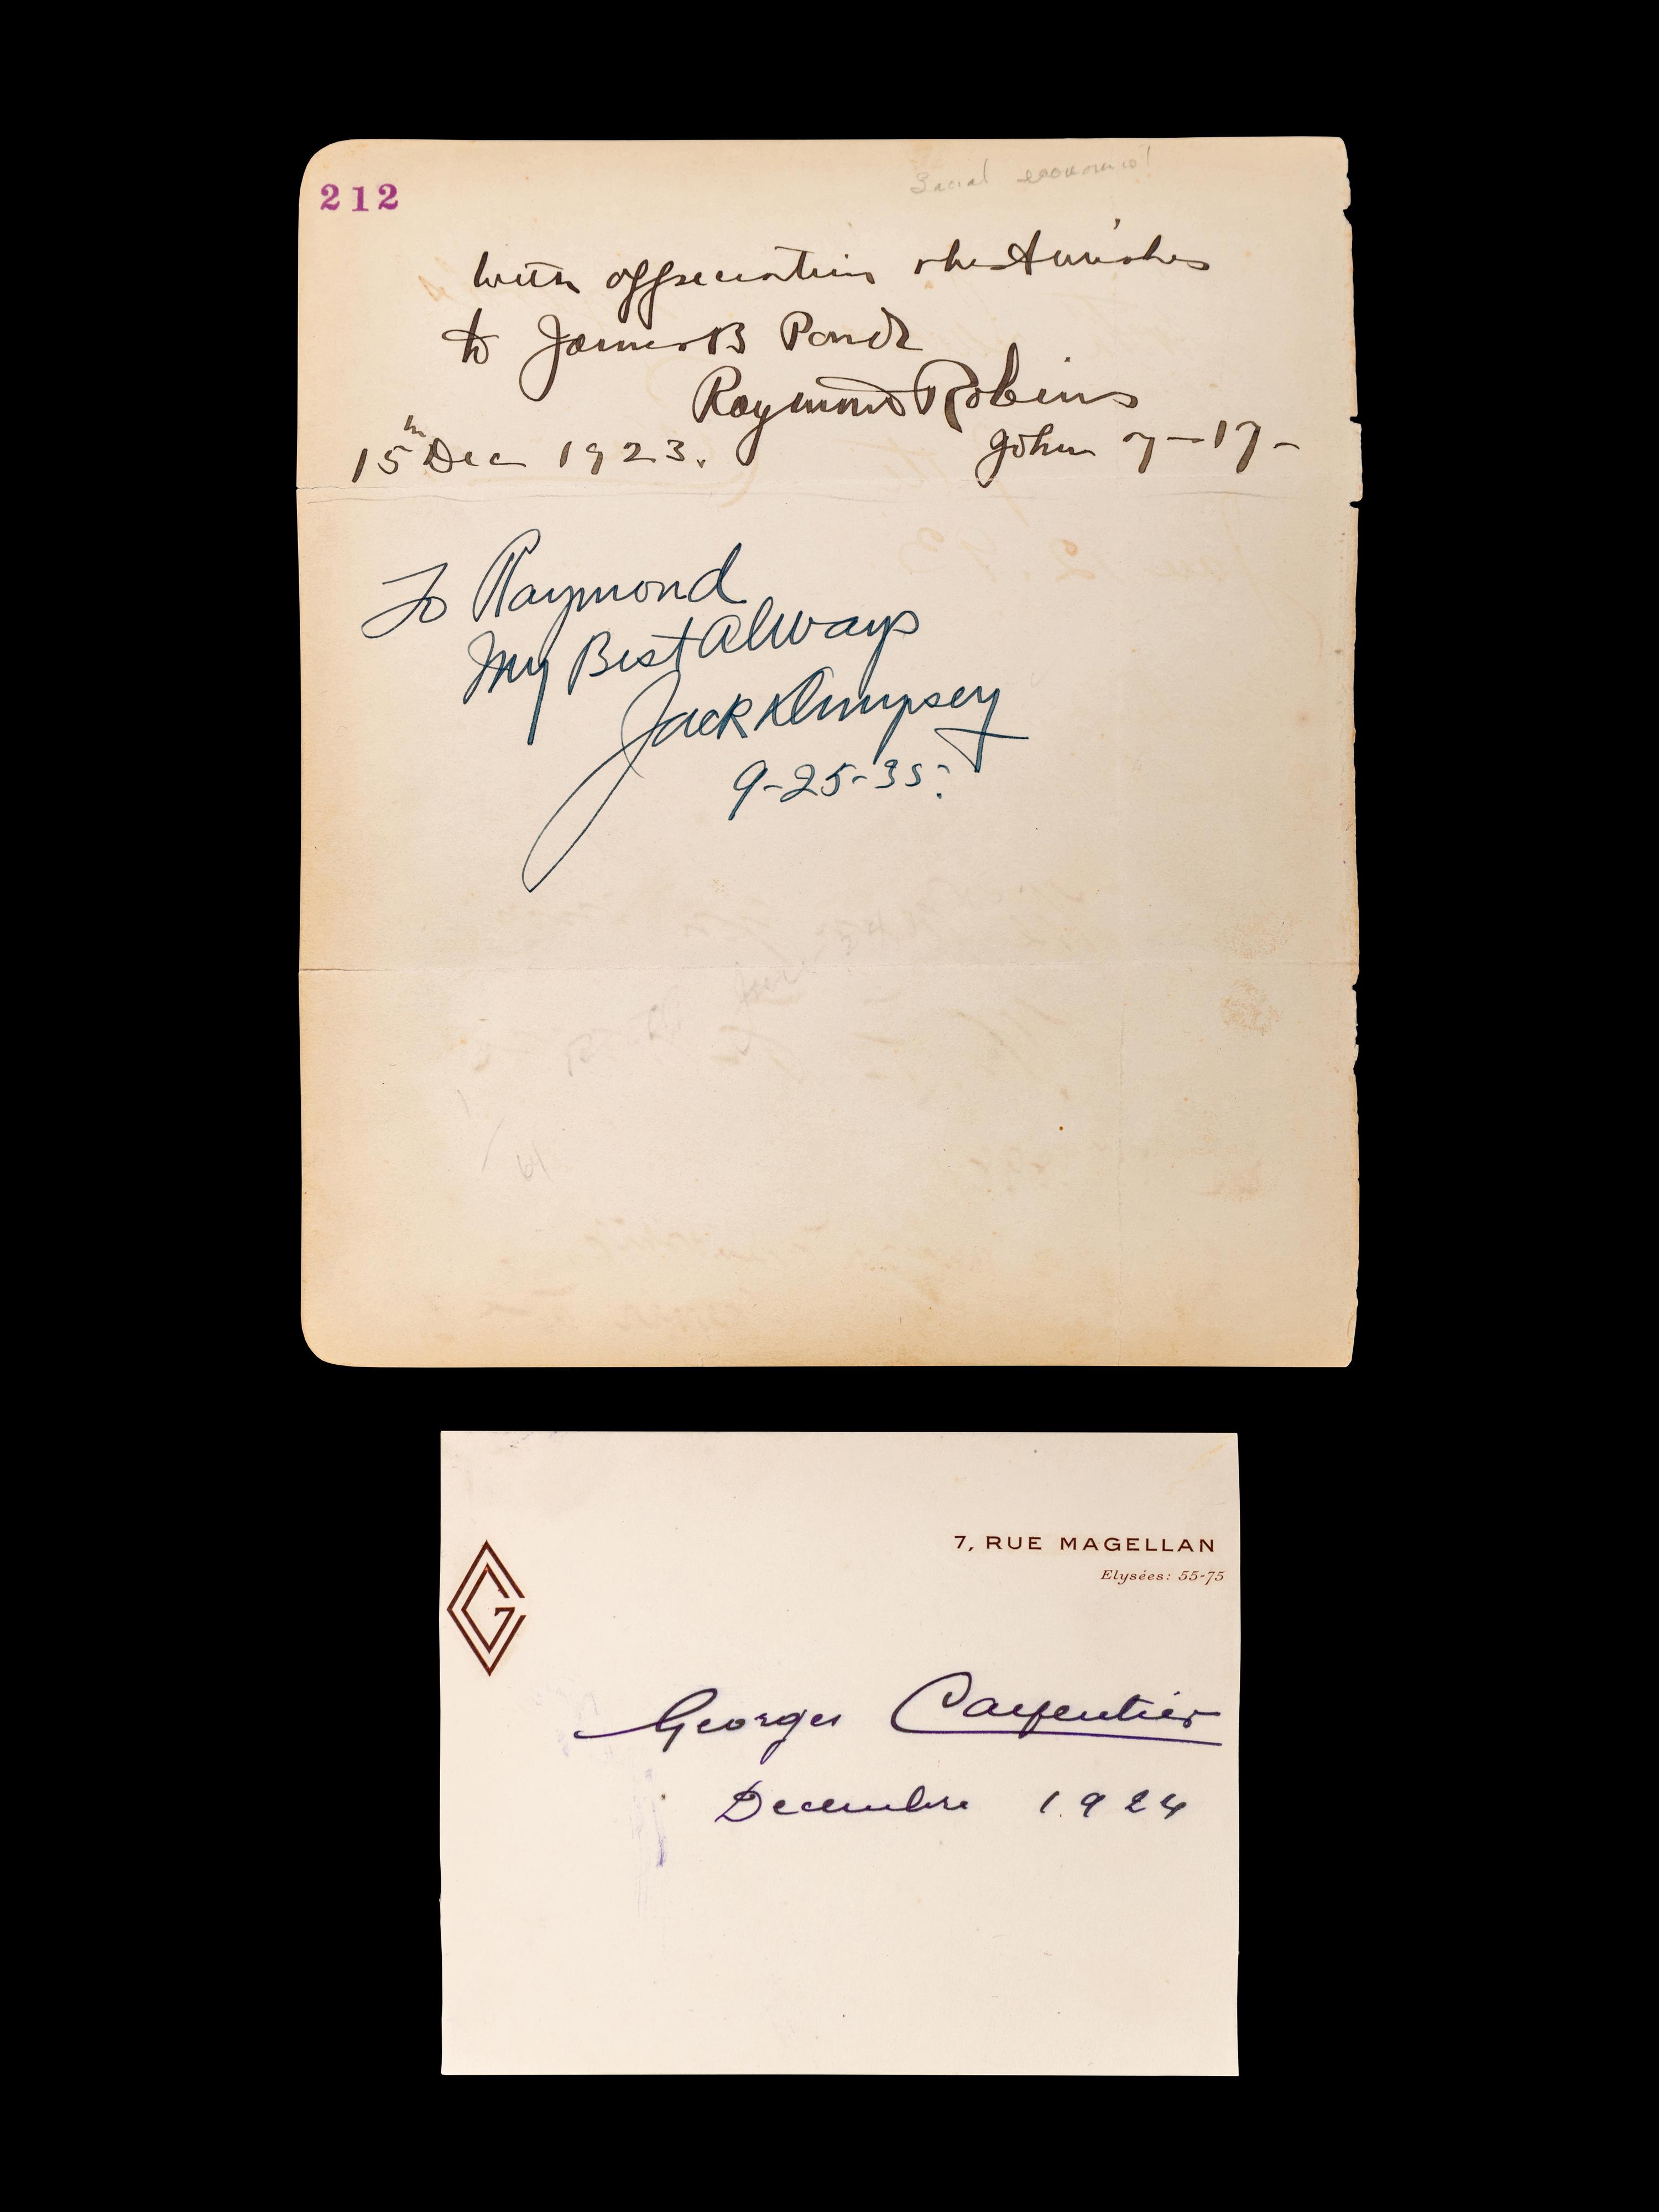 212
Social economist
With appreciation & best wishes
to James B Pond
Raymond Robins
15th Dec 1923.
John 7-17-
To Raymond
My Best Always
Jack Dempsey
9-25-35.
64
7, RUE MAGELLAN
Elysées: 55-75
G
Georges Carpentier
Decembre 1924